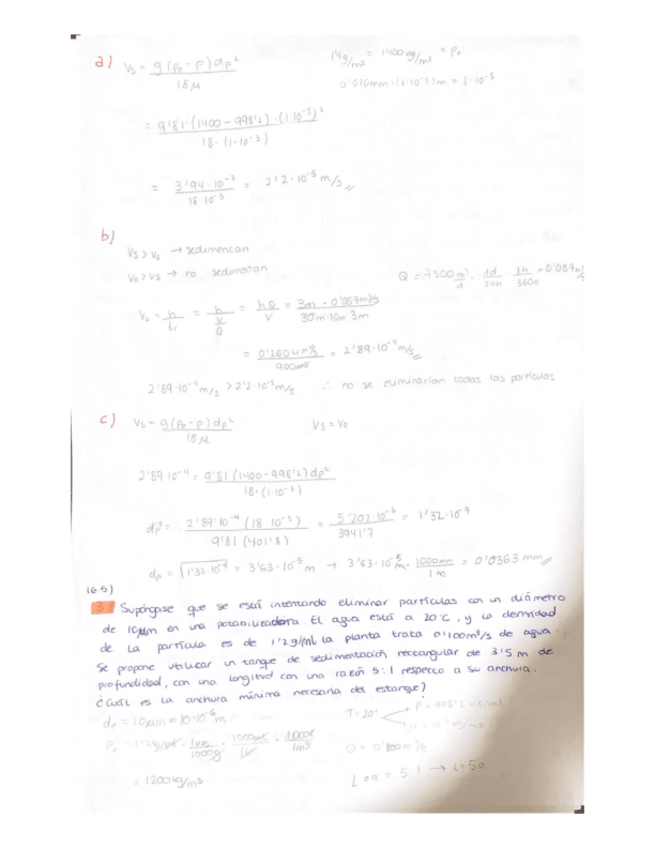 a) Vs = g (ρp - ρ) dp² / 18 μ
1400 kg/m³ = ρp
0'010mm · (1·10⁻³) m = 1·10⁻⁵
= 9'81 · (1400 - 998'2) · (1·10⁻⁵)² / 18 · (1·10⁻³)
= 3'94 · 10⁻⁷ / 18·10⁻³ = 2'2 · 10⁻⁵ m/s
b)
Vs > Vo → sedimentan
Vo > Vs → no sedimentan
Q = 7500 m³/d · 1d/24h · 1h/3600 = 0'087 m³/s
Vo = h/tr = h / V/Q = hQ/V = 3m · 0'087m³/s / 30m·10m·3m
= 0'2604 / 900m³ = 2'89·10⁻⁴ m/s
2'89·10⁻⁴ m/s > 2'2·10⁻⁵ m/s ∴ no se eliminarían todas las partículas
c) Vs = g (ρp - ρ) dp² / 18 μ Vs = Vo
2'89·10⁻⁴ = 9'81 (1400 - 998'2) dp² / 18·(1·10⁻³)
dp² = 2'89·10⁻⁴ (18·10⁻³) / 9'81 (401'8) = 5'202·10⁻⁶ / 3941'7 = 1'32·10⁻⁹
dp = √1'32·10⁻⁹ = 3'63·10⁻⁵ m → 3'63·10⁻⁵ m · 1000mm / 1m = 0'0363 mm
16.5)
3. Supóngase que se está intentando eliminar partículas con un diámetro
de 10μm en una potabilizadora. El agua está a 20°C, y la densidad
de la partícula es de 1'2g/ml la planta trata 0'100m³/s de agua.
Se propone utilizar un tanque de sedimentación rectangular de 3'5 m de
profundidad, con una longitud con una razón 5:1 respecto a su anchura.
¿Cuál es la anchura mínima necesaria del estanque?
dp = 10μm = 10·10⁻⁶ m
T = 20° ρ = 998'2 kg/m³
ρp = 1'2g/ml · 1kg/1000g
Q = 0'100 m³/s
= 1200kg/m³
L = a = 5:1 → L = 5a